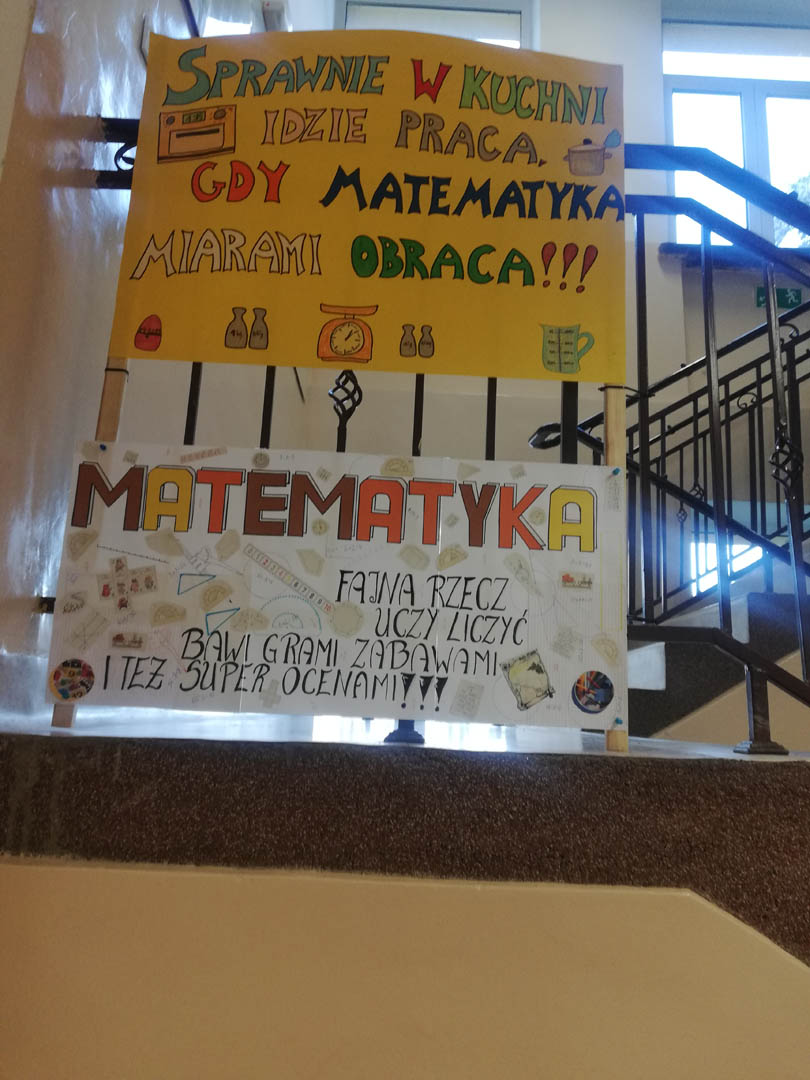 SPRAWNIE W KUCHNI
IDZIE PRACA,
GDY MATEMATYKA
MIARAMI OBRACA!!!
MATEMATYKA
FAJNA RZECZ
UCZY LICZYĆ
BAWI GRAMI ZABAWAMI
I TEŻ SUPER OCENAMI!!!